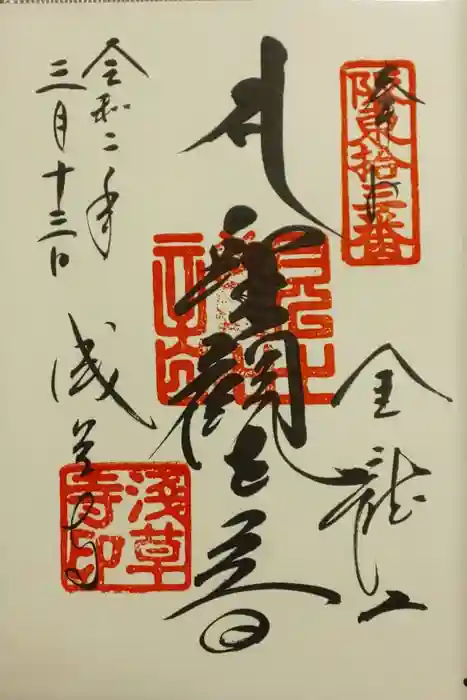 奉拝
坂東拾三番
金龍山
聖観世音
令和二年
三月十三日
浅草寺
浅草寺印